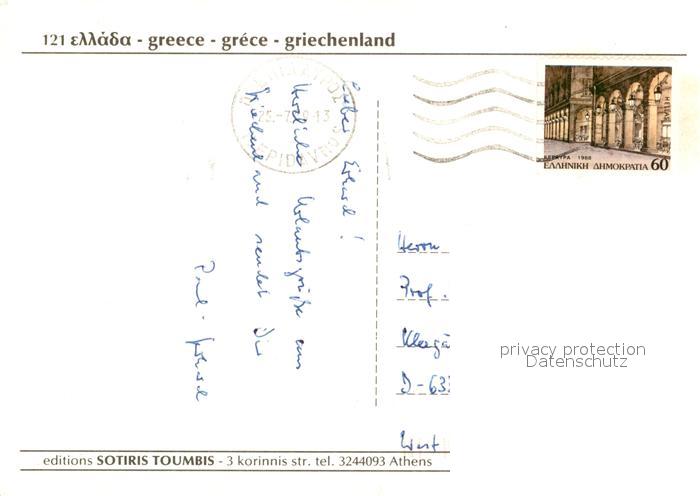 121 ελλάδα - greece - gréce - griechenland
ΕΠΙΔΑΥΡΟΣ
EPIDAVROS
ΚΕΡΚΥΡΑ 1988
ΕΛΛΗΝΙΚΗ ΔΗΜΟΚΡΑΤΙΑ 60
Lieber Erhard!
Herzliche Urlaubsgrüße aus
Griechenland sendet Dir
Paul-Gerhard
Herrn
Prof.
D-63
West
privacy protection
Datenschutz
editions SOTIRIS TOUMBIS - 3 korinnis str. tel. 3244093 Athens